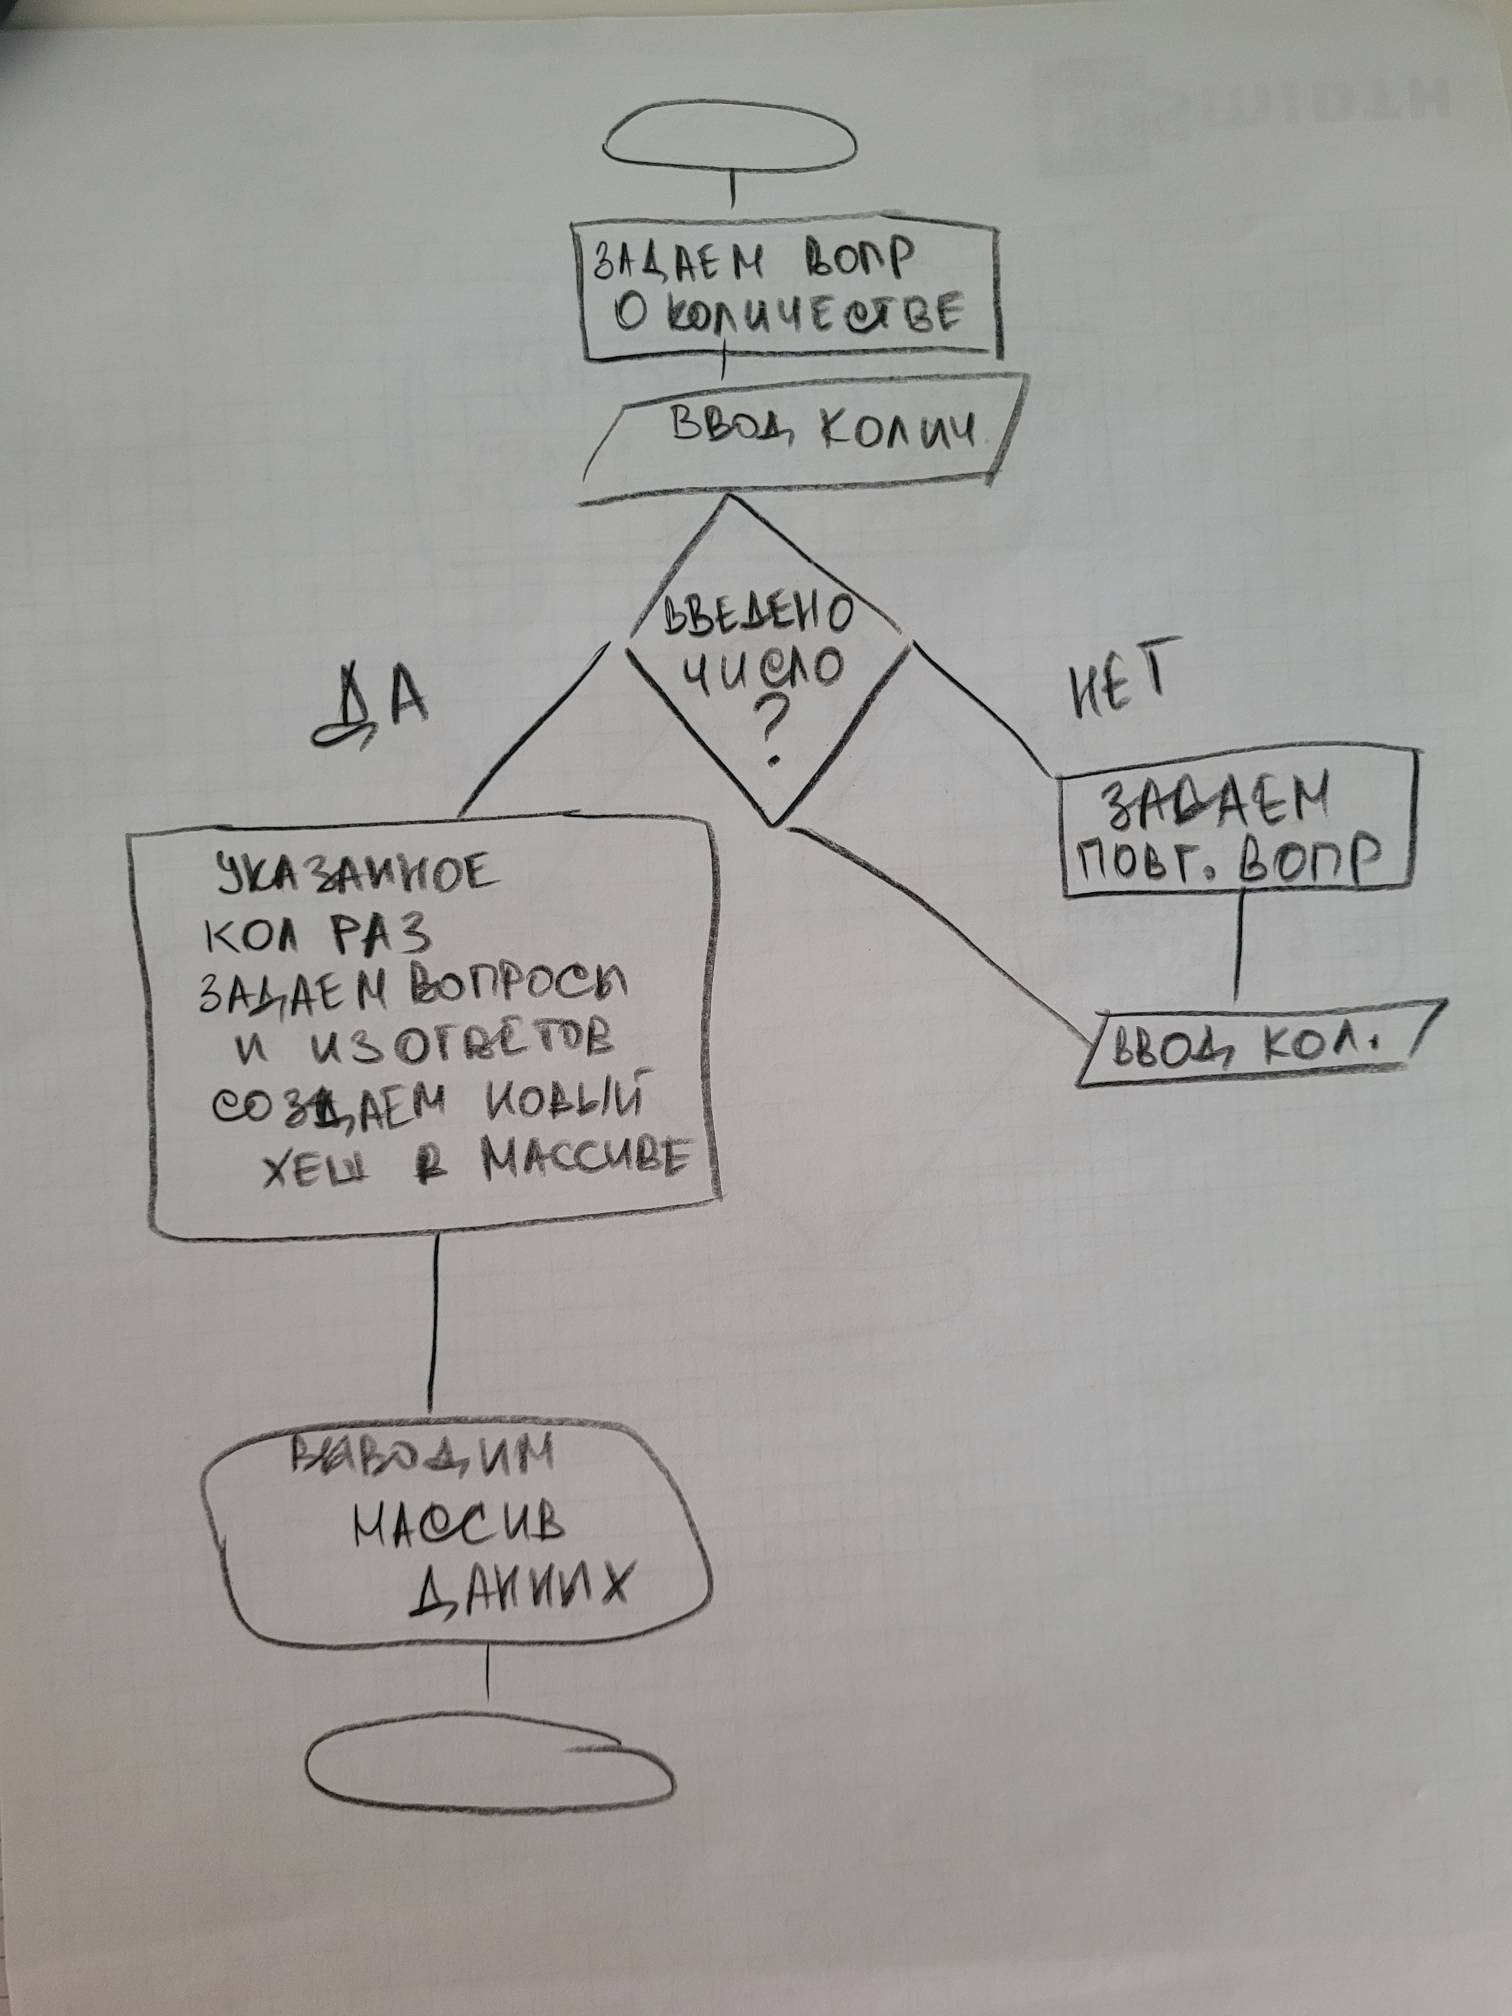 ЗАДАЕМ ВОПР
О КОЛИЧЕСТВЕ
ВВОД КОЛИЧ.
ВВЕДЕНО
ЧИСЛО
?
ДА
НЕТ
ЗАДАЕМ
ПОВТ. ВОПР
ВВОД КОЛ.
УКАЗАННОЕ
КОЛ РАЗ
ЗАДАЕМ ВОПРОСЫ
И ИЗ ОТВЕТОВ
СОЗДАЕМ НОВЫЙ
ХЕШ В МАССИВЕ
ВЫВОДИМ
МАССИВ
ДАННЫХ